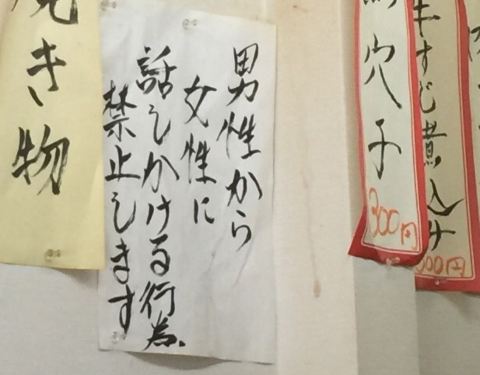 穴子
300円
牛すじ煮込み
300円
男性から
女性に
話しかける行為、
禁止します
焼き物